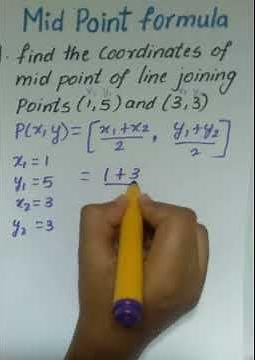 Mid Point formula
1. find the Coordinates of
mid point of line joining
x₁ y₁ x₂ y₂
Points (1,5) and (3,3)
P(x,y) = [x₁+x₂/2, y₁+y₂/2]
x₁ = 1
y₁ = 5
x₂ = 3
y₂ = 3
= 1+3